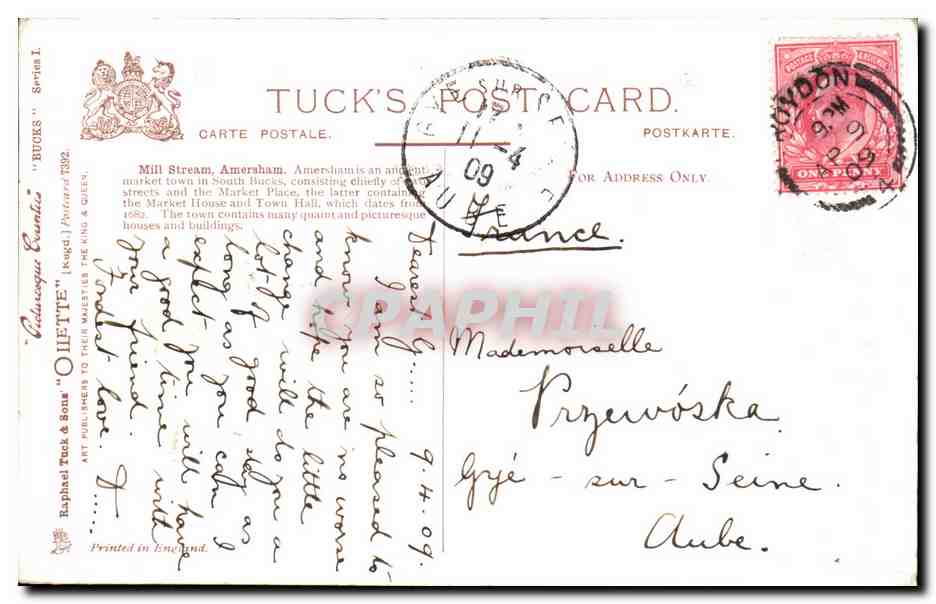 TUCK'S POST CARD.
CARTE POSTALE.
POSTKARTE.
Mill Stream, Amersham. Amersham is an ancient
market town in South Bucks, consisting chiefly of
streets and the Market Place, the latter containing
the Market House and Town Hall, which dates from
1682. The town contains many quaint and picturesque
houses and buildings.
FOR ADDRESS ONLY.
SUR
11-4
09
AUBE
POSTAGE
ONE PENNY
CROYDON
9 PM
AP 9
09
France.
Mademoiselle
Przewóska
Gyé - sur - Seine.
Aube.
9.4.09.
Dearest ly....
I am so pleased to
know you are no worse
and hope the little
change will do you a
lot of good. stay as
long as you can I
expect you will have
a good time with
your friend.
Fondest love.
"Picturesque Counties" "BUCKS" Series I.
Raphael Tuck & Sons' "OILETTE" [Regd.] Postcard 7392.
ART PUBLISHERS TO THEIR MAJESTIES THE KING & QUEEN.
Printed in England.
CPAPHIL